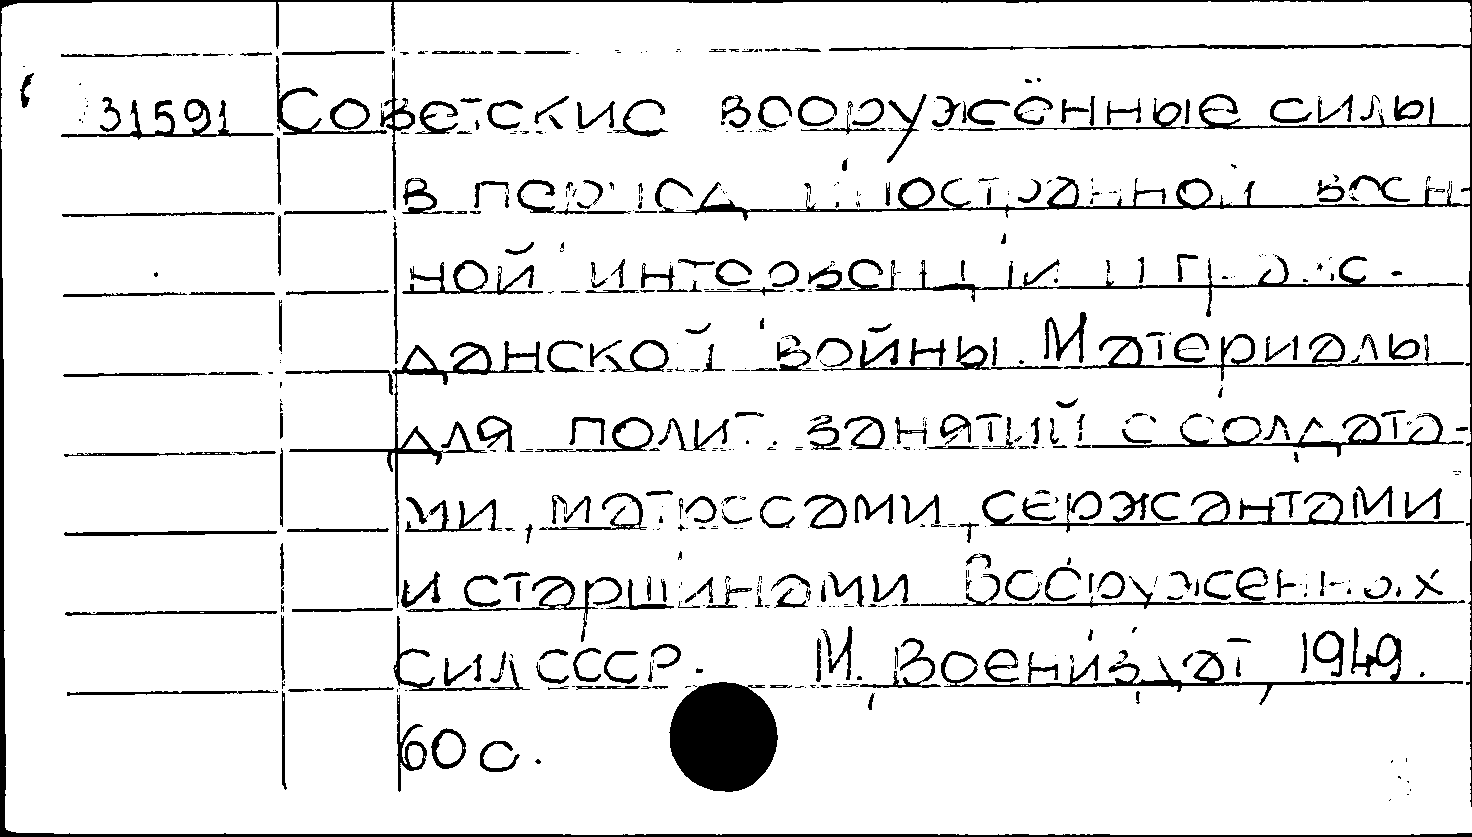 31591 Советские вооружённые силы
в период иностранной воен-
ной интервенции и граж-
данской войны. Материалы
для полит. занятий с солдата-
ми, матросами, сержантами
и старшинами Вооруженных
сил СССР. М, Воениздат, 1949.
60 с.